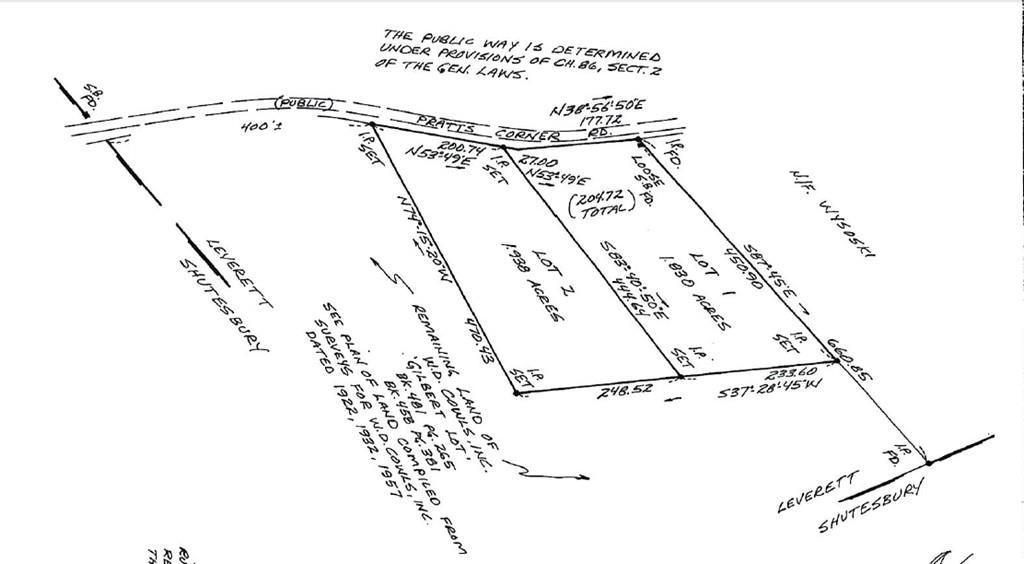 THE PUBLIC WAY IS DETERMINED
UNDER PROVISIONS OF CH. 86, SECT. 2
OF THE GEN. LAWS.
S.B.
FD.
(PUBLIC)
PRATTS CORNER RD.
400'±
N38°-56'-50"E
177.72
I.P.
SET
200.74
N53°49'E
I.P.
SET
27.00
N53°49'E
(204.72
TOTAL)
LOOSE
S.B.
FD.
I.P.
FD.
N/F. WYSOSKI
LEVERETT
SHUTESBURY
N74°-15'-20"W
470.43
LOT 2
1.938 ACRES
S83°-40'-50"E
444.64
LOT 1
1.830 ACRES
S87°-45'E
450.90
I.P.
SET
660.85
I.P.
SET
I.P.
SET
248.52
233.60
S37°-28'-45"W
REMAINING LAND OF
W.D. COWLS, INC.
"GILBERT LOT"
BK. 481 PG. 265
BK. 458 PG. 381
SEE PLAN OF LAND COMPILED FROM
SURVEYS FOR W.D. COWLS, INC.
DATED 1922, 1932, 1957
I.P.
FD.
LEVERETT
SHUTESBURY
RU
RE
TH